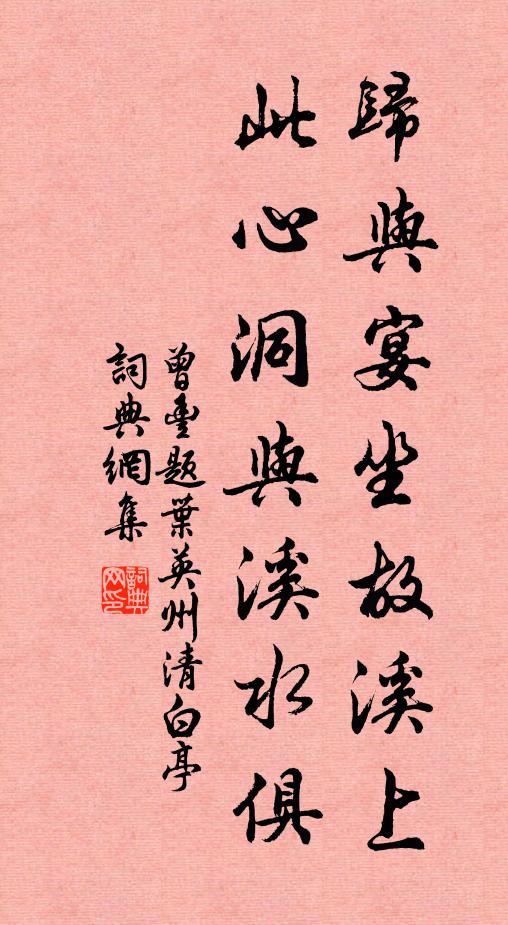 歸與宴坐故溪上
此心洞與溪水俱
曾豐題葉英州清白亭
詞典網集
詞典网印